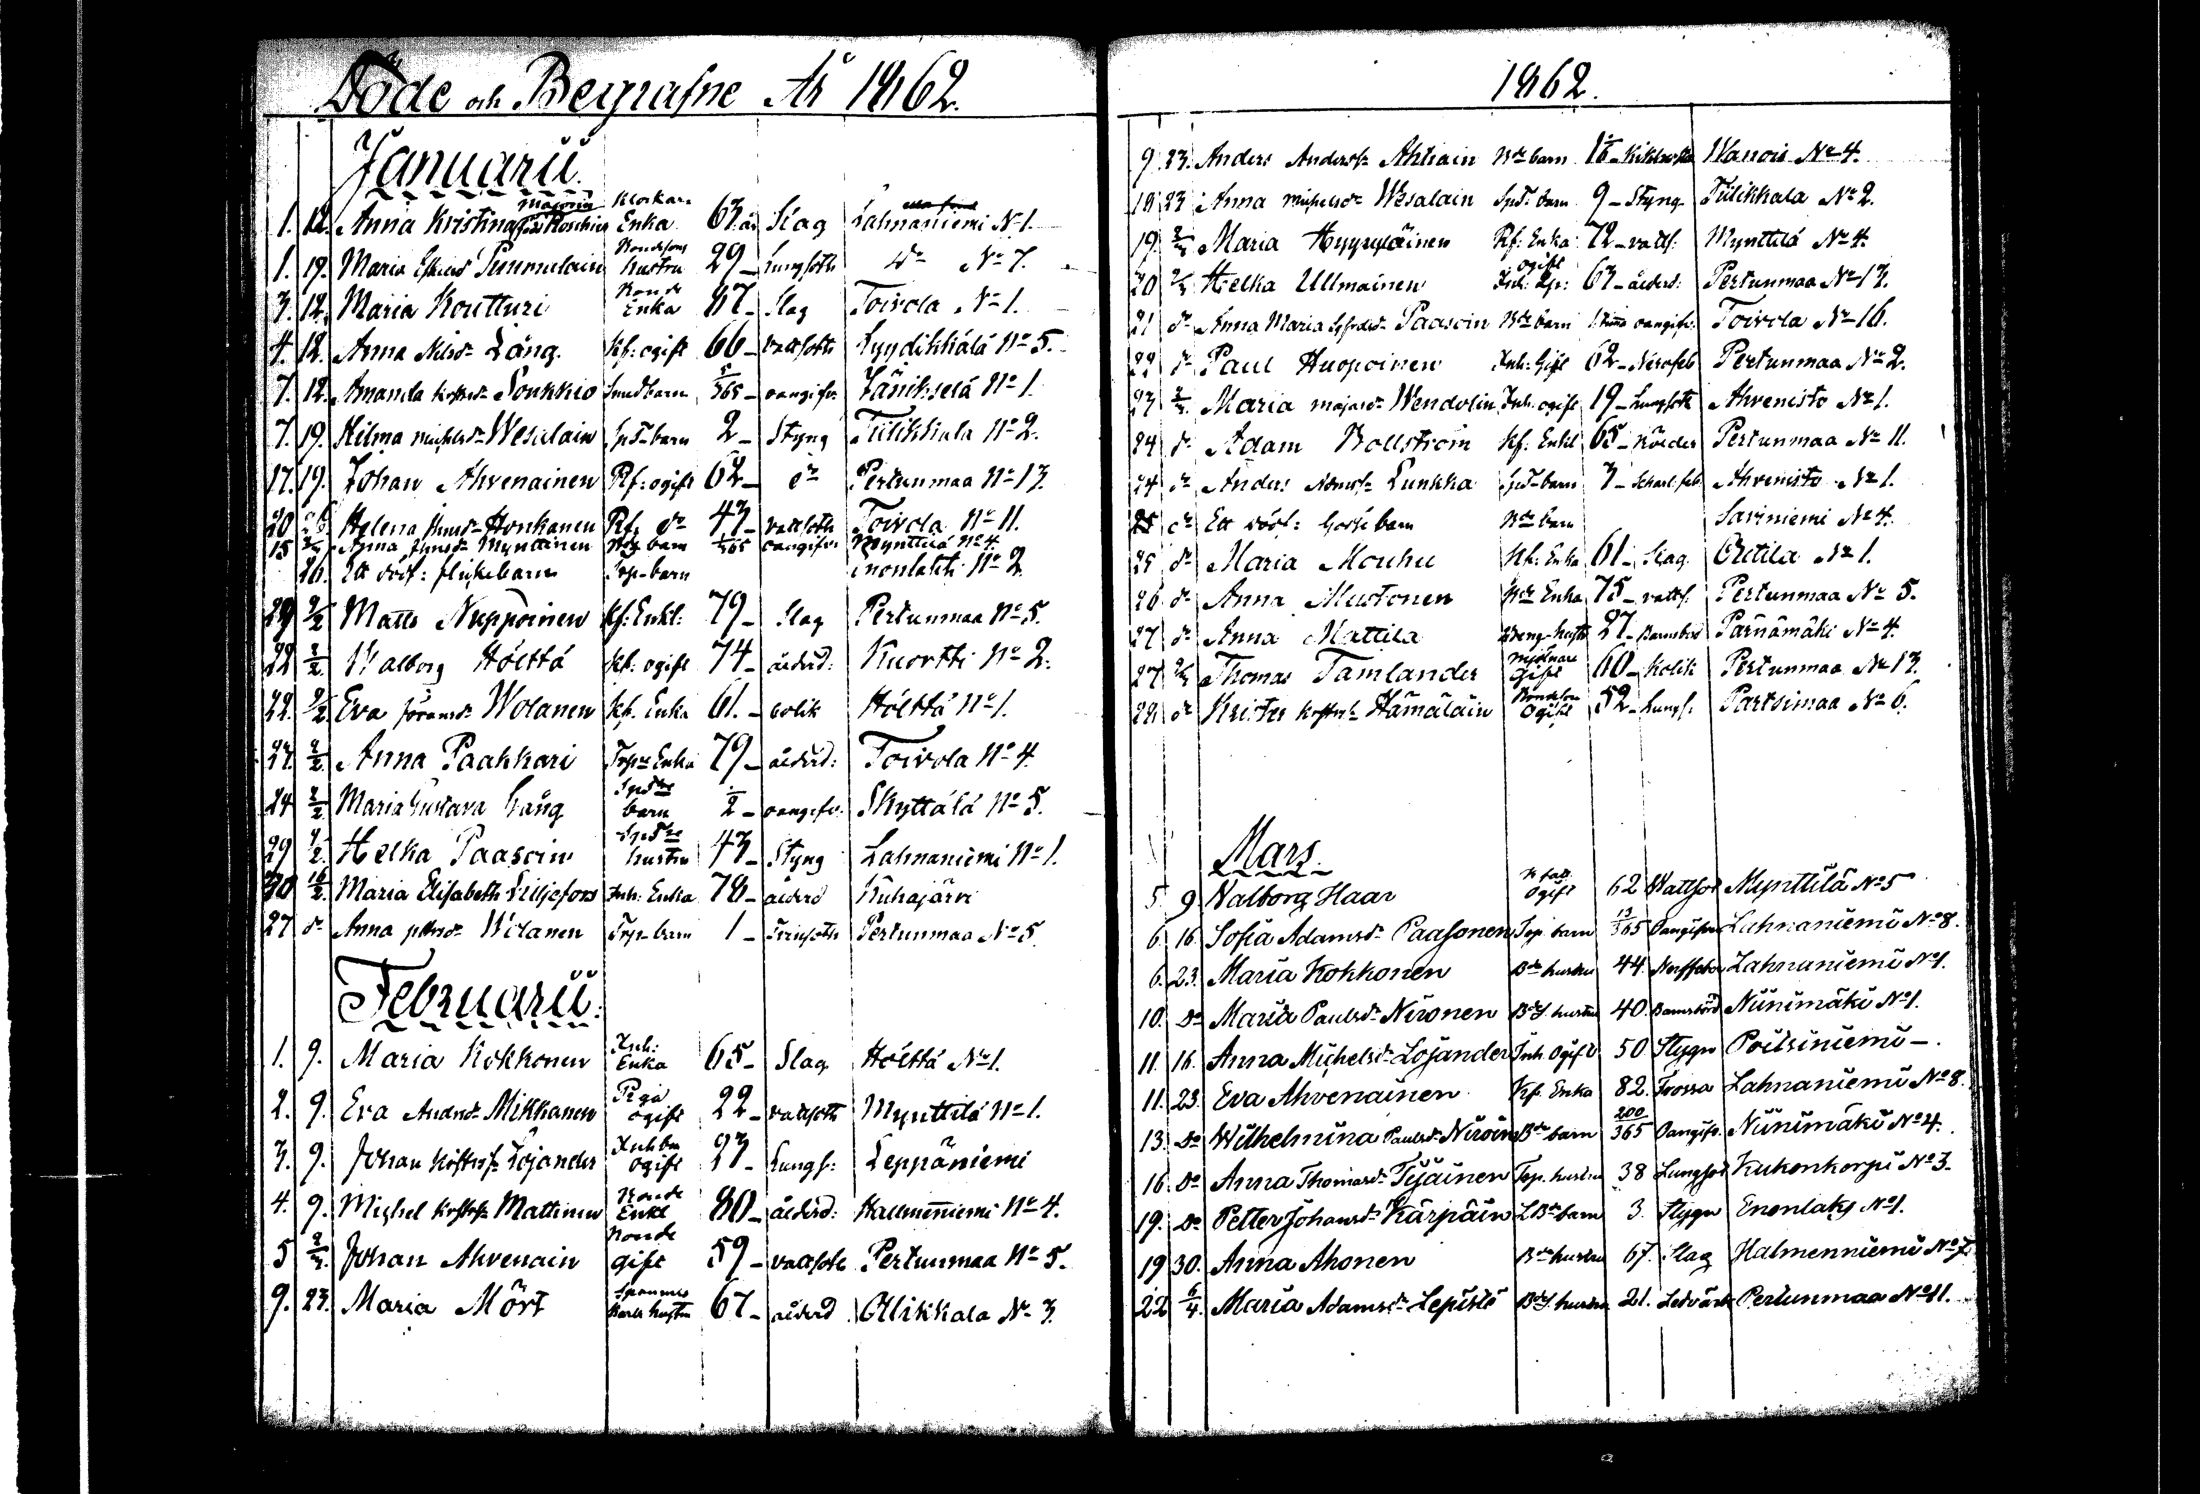 Döde och Begrafne År 1862.
Januarii
1. 12. Anna Kristina Roschier Klockare Enka 63 år Slag Lahnaniemi No 1.
1. 19. Maria Pummalain Bondesons hustru 29 – Lungsoth do No 7.
3. 12. Maria Koutturi Bonde Enka 87 – Slag Toivola No 1.
4. 12. Anna Nilsdr Lång. Kf: ogift 66 – vattsoth Kyydikkälä No 5.
7. 12. Amanda Soukkio barn 5/365 – oangifv. Jänikselä No 1.
7. 19. Hilma Michelsdr Wesalain Spdr barn 2 – Styng Tiilikkala No 2.
17. 19. Johan Ahvenainen Rf: ogift 62 – do Pertunmaa No 13.
20 26 Helena Honkanen Rf. do 43 – vattsoth Toivola No 11.
15 Anna Mynttinen barn 1/365 oangifv. Mynttilä No 4.
26. Ett död: flickebarn Trp. barn Enonlahti No 2
29 2/2 Matts Nuppoinen Kf: Enkl: 79 – Slag Pertunmaa No 5.
22 2/2 Walborg Hölttä Kf: ogift 74 – ålderd: Kuortti No 2.
22. 2/2 Eva Göransdr Wolanen Kf. Enka 61. – colik Hölttä No 1.
27. 2/2 Anna Paahkari Trprs Enka 79 – ålderd: Toivola No 4.
24 2/2 Maria Gustava Lång barn 1/2 – oangifv. Skyttälä No 5.
29 9/2. Helka Paasoin hustru 43 – Styng Lahnaniemi No 1.
30 16/2. Maria Elisabeth Lilljefors Inh: Enka 78 – ålderd Kuhajärvi
27 do Anna Wolanen Trp. barn 1 – Pertunmaa No 5.
Februarii.
1. 9. Maria Kokkonen Inh: Enka 65 – Slag Hölttä No 1.
2. 9. Eva Andrsdr Mikkanen Piga ogift 22 – vattsoth Mynttilä No 1.
3. 9. Johan Lojander ogift 27 – Lungs: Leppäniemi
4. 9. Michel Mattinen Bonde Enkl 80 – ålderd: Hallmenniemi No 4.
5 2/3. Johan Ahvenain Bonde gift 59 – vattsoth Pertunmaa No 5.
9. 23. Maria Mört hustru 67 – ålderd Ollikkala No 3.
1862.
9. 23. Anders Andersn Ahtiain Bde barn Kikhosta Wanois No 4.
18 23 Anna Michelsdr Wesalain Spdr barn 9 – Styng Tiilikkala No 2.
19 2/3 Maria Hyyryläinen Rf: Enka 72 – vatts: Mynttilä No 4.
20 2/3 Helka Ullmainen ogift 63 – ålderd: Pertunmaa No 13.
21 do Anna Maria Paasoin Bde barn oangifv. Toivola No 16.
22 do Paul Huopoinen Inh: Gift 62 – Nervfeb Pertunmaa No 2.
23 2/3. Maria Majasdr Wendolin Inh: ogift 19 – Lungsoth Ahvenisto No 1.
24 do Adam Bollström Kf: Enkl 65 – Pertunmaa No 11.
24 do Anders Lunkka Spdr barn 3 – Scharl.feb. Ahvenisto No 1.
25 do Ett död: Gosse barn Bde barn Saviniemi No 4.
25 do Maria Mouhu Kf. Enka 61 – Slag. Outila No 1.
26 do Anna Mustonen Bde Enka 75 – vatts. Pertunmaa No 5.
27 do Anna Mattila Dreng-hustr 27 – Barnsbörd Pärnämäki No 4.
27 Thomas Tamlander Mjölnare Gift 60 – Kolik Pertunmaa No 13.
28. do Krister Hämäläin Bondeson Ogift 52 – Lungs: Partsimaa No 6.
Mars.
5 9 Walborg Haar ogift 62 Wattsot Mynttilä No 5
6. 16. Sofia Adamsdr Paasonen Trp. barn 13/365 Oangifven Lahnaniemi No 8.
6. 23. Maria Kokkonen Bde hustru 44. Nerffeber Lahnaniemi No 1.
10. Do Maria Paulsdr Nironen BdeS. hustru 40. Barnsbörd Niinimäki No 1.
11. 16. Anna Michelsdr Lojander Inh. Ogift 50 Stygn Poitsiniemi –.
11. 23. Eva Ahvenainen Kf. Enka 82. Trossa Lahnaniemi No 8.
13. Do Wilhelmina Paulsdr Niroin Bde barn 200/365 Oangifv. Niinimäki No 4.
16. Do Anna Thomasdr Tyäinen Trp. hustru 38 Lungsot Kukonkorpi No 3.
19. Do Petter Johansdr Kärpäin LBde barn 3. Stygn Enonlaks No 1.
19 30. Anna Ahonen Bde hustru 67. Slag Halmenniemi No 7.
22 6/4. Maria Adamsdr Lepistö BdeS. hustru 21. Ledvärk Pertunmaa No 11.